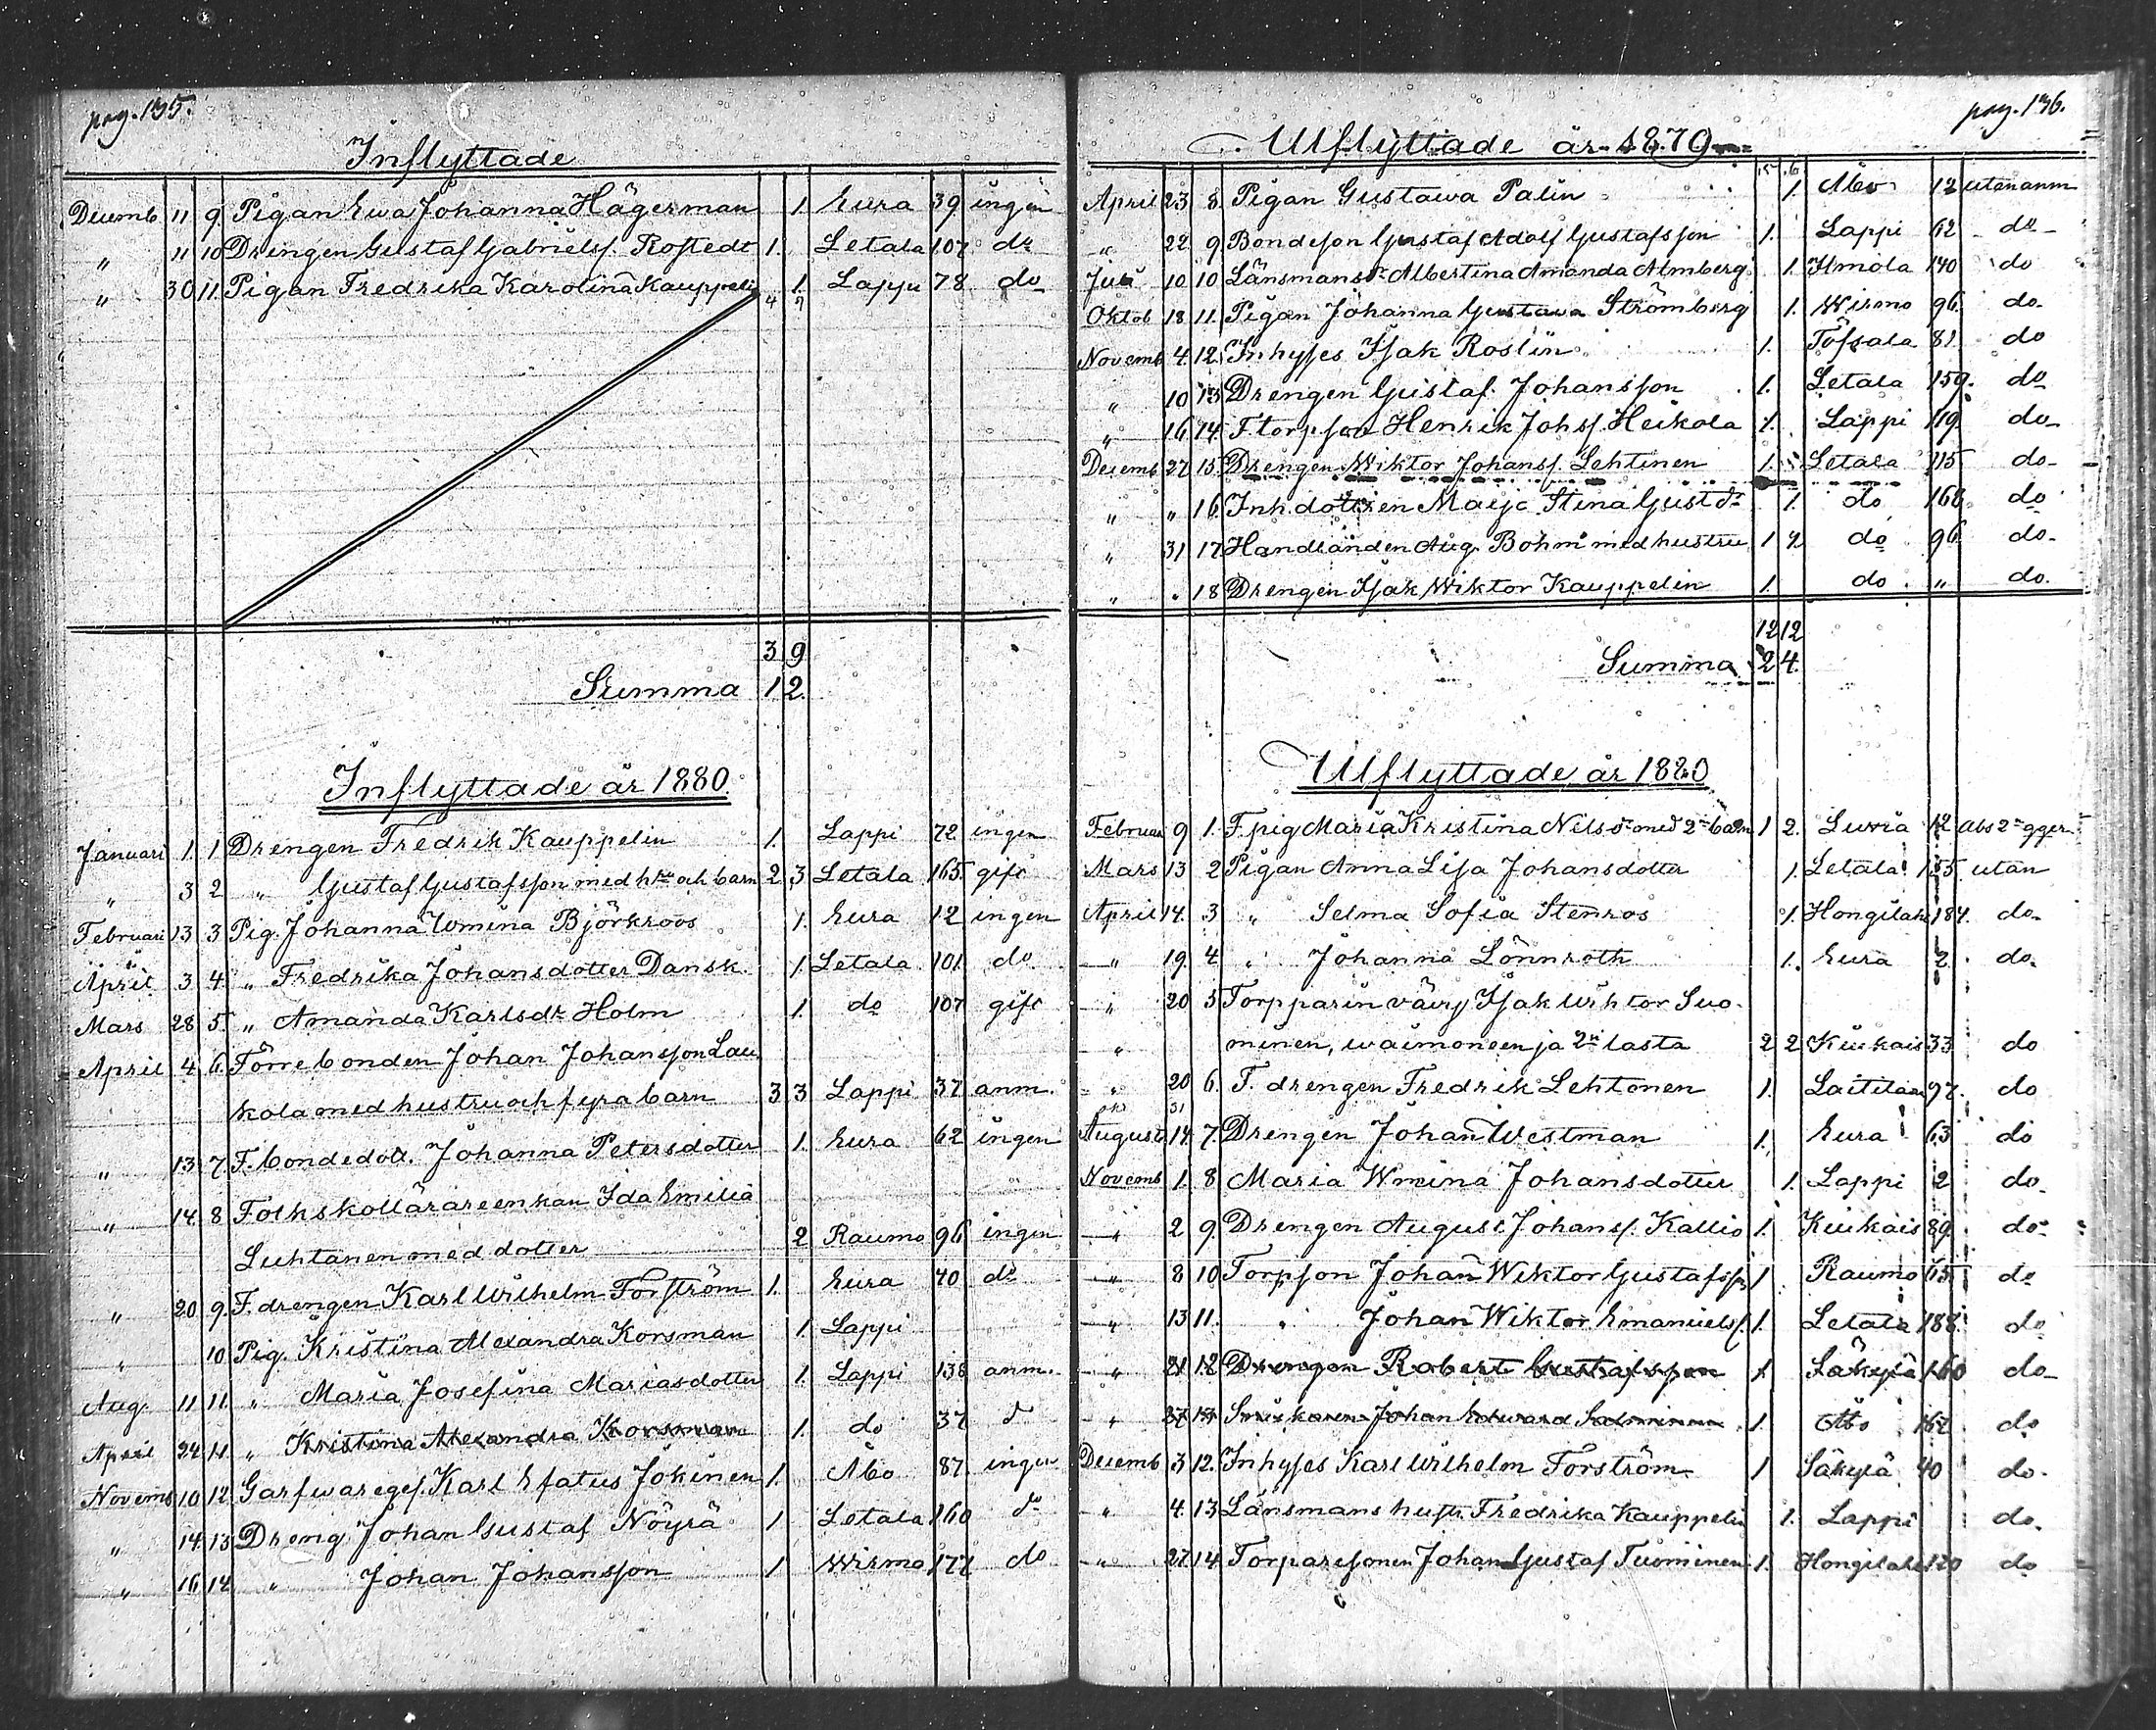 pag. 135.
Inflyttade
Decemb 11 9. Pigan Ewa Johanna Hägerman 1. Eura 39 ingen
" 11 10 Drengen Gustaf Gabrielss. Rostedt 1. Letala 107 do
" 30 11. Pigan Fredrika Karolina Kauppelin 1. Lappi 78 do
3 9
Summa 12.
Inflyttade år 1880.
Januari 1. 1 Drengen Fredrik Kauppelin 1. Lappi 72 ingen
" 3 2 " Gustaf Gustafsson med hru och barn 2 3 Letala 165 gift
Februari 13 3 Pig. Johanna Wmina Björkroos 1. Eura 12 ingen
April 3 4. " Fredrika Johansdotter Dansk. 1 Letala 101 do
Mars 28 5. " Amanda Karlsdr Holm 1. do 107 gift
April 4 6. Förre bonden Johan Johansson Lau
kola med hustru och fyra barn 3 3 Lappi 37 anm.
" 13 7. F. bondedott. Johanna Petersdotter 1. Eura 62 ingen
" 14 8 Folkskollärareenkan Ida Emilia
Luhtanen med dotter 2 Raumo 96 ingen
" 20 9. F. drengen Karl Wilhelm Forström 1. Eura 40 do
" 10 Pig. Kristina Alexandra Korsman 1. Lappi
Aug. 11 11. " Maria Josefina Mariasdotter 1. Lappi 138 anm.
April 24 11. " Kristina Alexandra Korsman 1. do 37 d
Novemb 10 12. Garfwareges. Karl Efatus Jokinen 1. Åbo 87. ingen
" 14 13 Dreng. Johan Gustaf Nöyrä 1 Letala 160 do
" 16 14 " Johan Johansson 1 Wirmo 177 do
pag. 136.
Utflyttade år 1879
April 23 8. Pigan Gustawa Palin 1. Åbo 12 utan anm
" 22 9. Bondeson Gustaf Adolf Gustafsson 1. Lappi 62 do
Juli 10 10 Länsmansdr Albertina Amanda Almberg 1. Ilmola 140 do
Oktob 18 11. Pigan Johanna Gustawa Strömberg 1. Wirmo 96 do
Novemb 4. 12. Inhyses Isak Roslin 1. Töfsala 81 do
" 10 13 Drengen Gustaf Johansson 1. Letala 159. do
" 16 14. F. torpson Henrik Johss. Heikola 1. Lappi 119 do
Decemb 27 15. Drengen Wiktor Johanss. Lehtinen 1. Letala 115 do
" " 16. Inh. dottren Maija Stina Gustdr 1. do 168 do
" 31 17. Handlanden Aug. Bohm med hustru 1 2 do 96 do
" " 18 Drengen Isak Wiktor Kauppelin 1. do " do.
12 12
Summa 24.
Utflyttade år 1880
Februari 9 1. F. pig Maria Kristina Nilsdr med 2ne barn 1 2. Luvia 12 abs 2ne gger
Mars 13 2 Pigan Anna Lisa Johansdotter 1. Letala 155 utan
April 14. 3 " Selma Sofia Stenros 1. Hongilak 184. do
" 19 4 " Johanna Lönnroth 1. Eura 2 do.
" 20 5 Torpparin vävy Isak Wihtor Suo-
" minen, waimoneen ja 2si lasta 2 2 Kiukais 33 do
" 20 6. F. drengen Fredrik Lehtonen 1. Laitilaan 97. do
31
Augusti 14. 7. Drengen Johan Westman 1. Eura 63 do
Novemb 1. 8 Maria Wmina Johansdotter 1. Lappi 2 do
" 2 9. Drengen August Johanss. Kallio 1. Kiukais 89. do
" 8 10. Torpson Johan Wiktor Gustafsson 1 Raumo 65 do
" 13 11. " Johan Wiktor Emanuelss. 1. Letala 188. do
" 21 12 Drengen Robert Gustafsson 1 Säkylä 160 do
" Johan Edward Salminen 1. Åbo 167 do
Decemb 3 12. Inhyses Karl Wilhelm Forström 1 Säkylä 40 do
" 4. 13 Länsmans hustr. Fredrika Kauppelin 1. Lappi do.
" 27. 14. Torparesonen Johan Gustaf Tuominen 1. Hongilaks 120 do